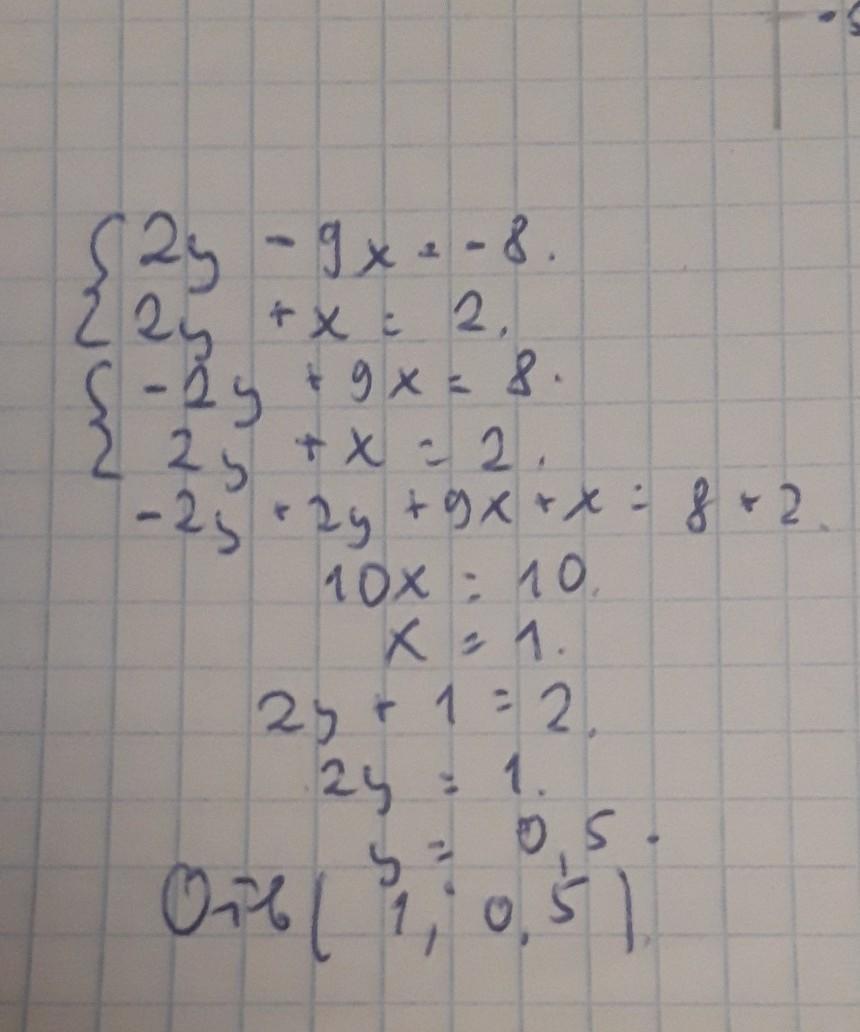 { 2y - 9x = -8.
{ 2y + x = 2.
{ -2y + 9x = 8.
{ 2y + x = 2.
-2y + 2y + 9x + x = 8 + 2.
10x = 10.
x = 1.
2y + 1 = 2.
2y = 1.
y = 0,5.
Отв (1; 0,5).